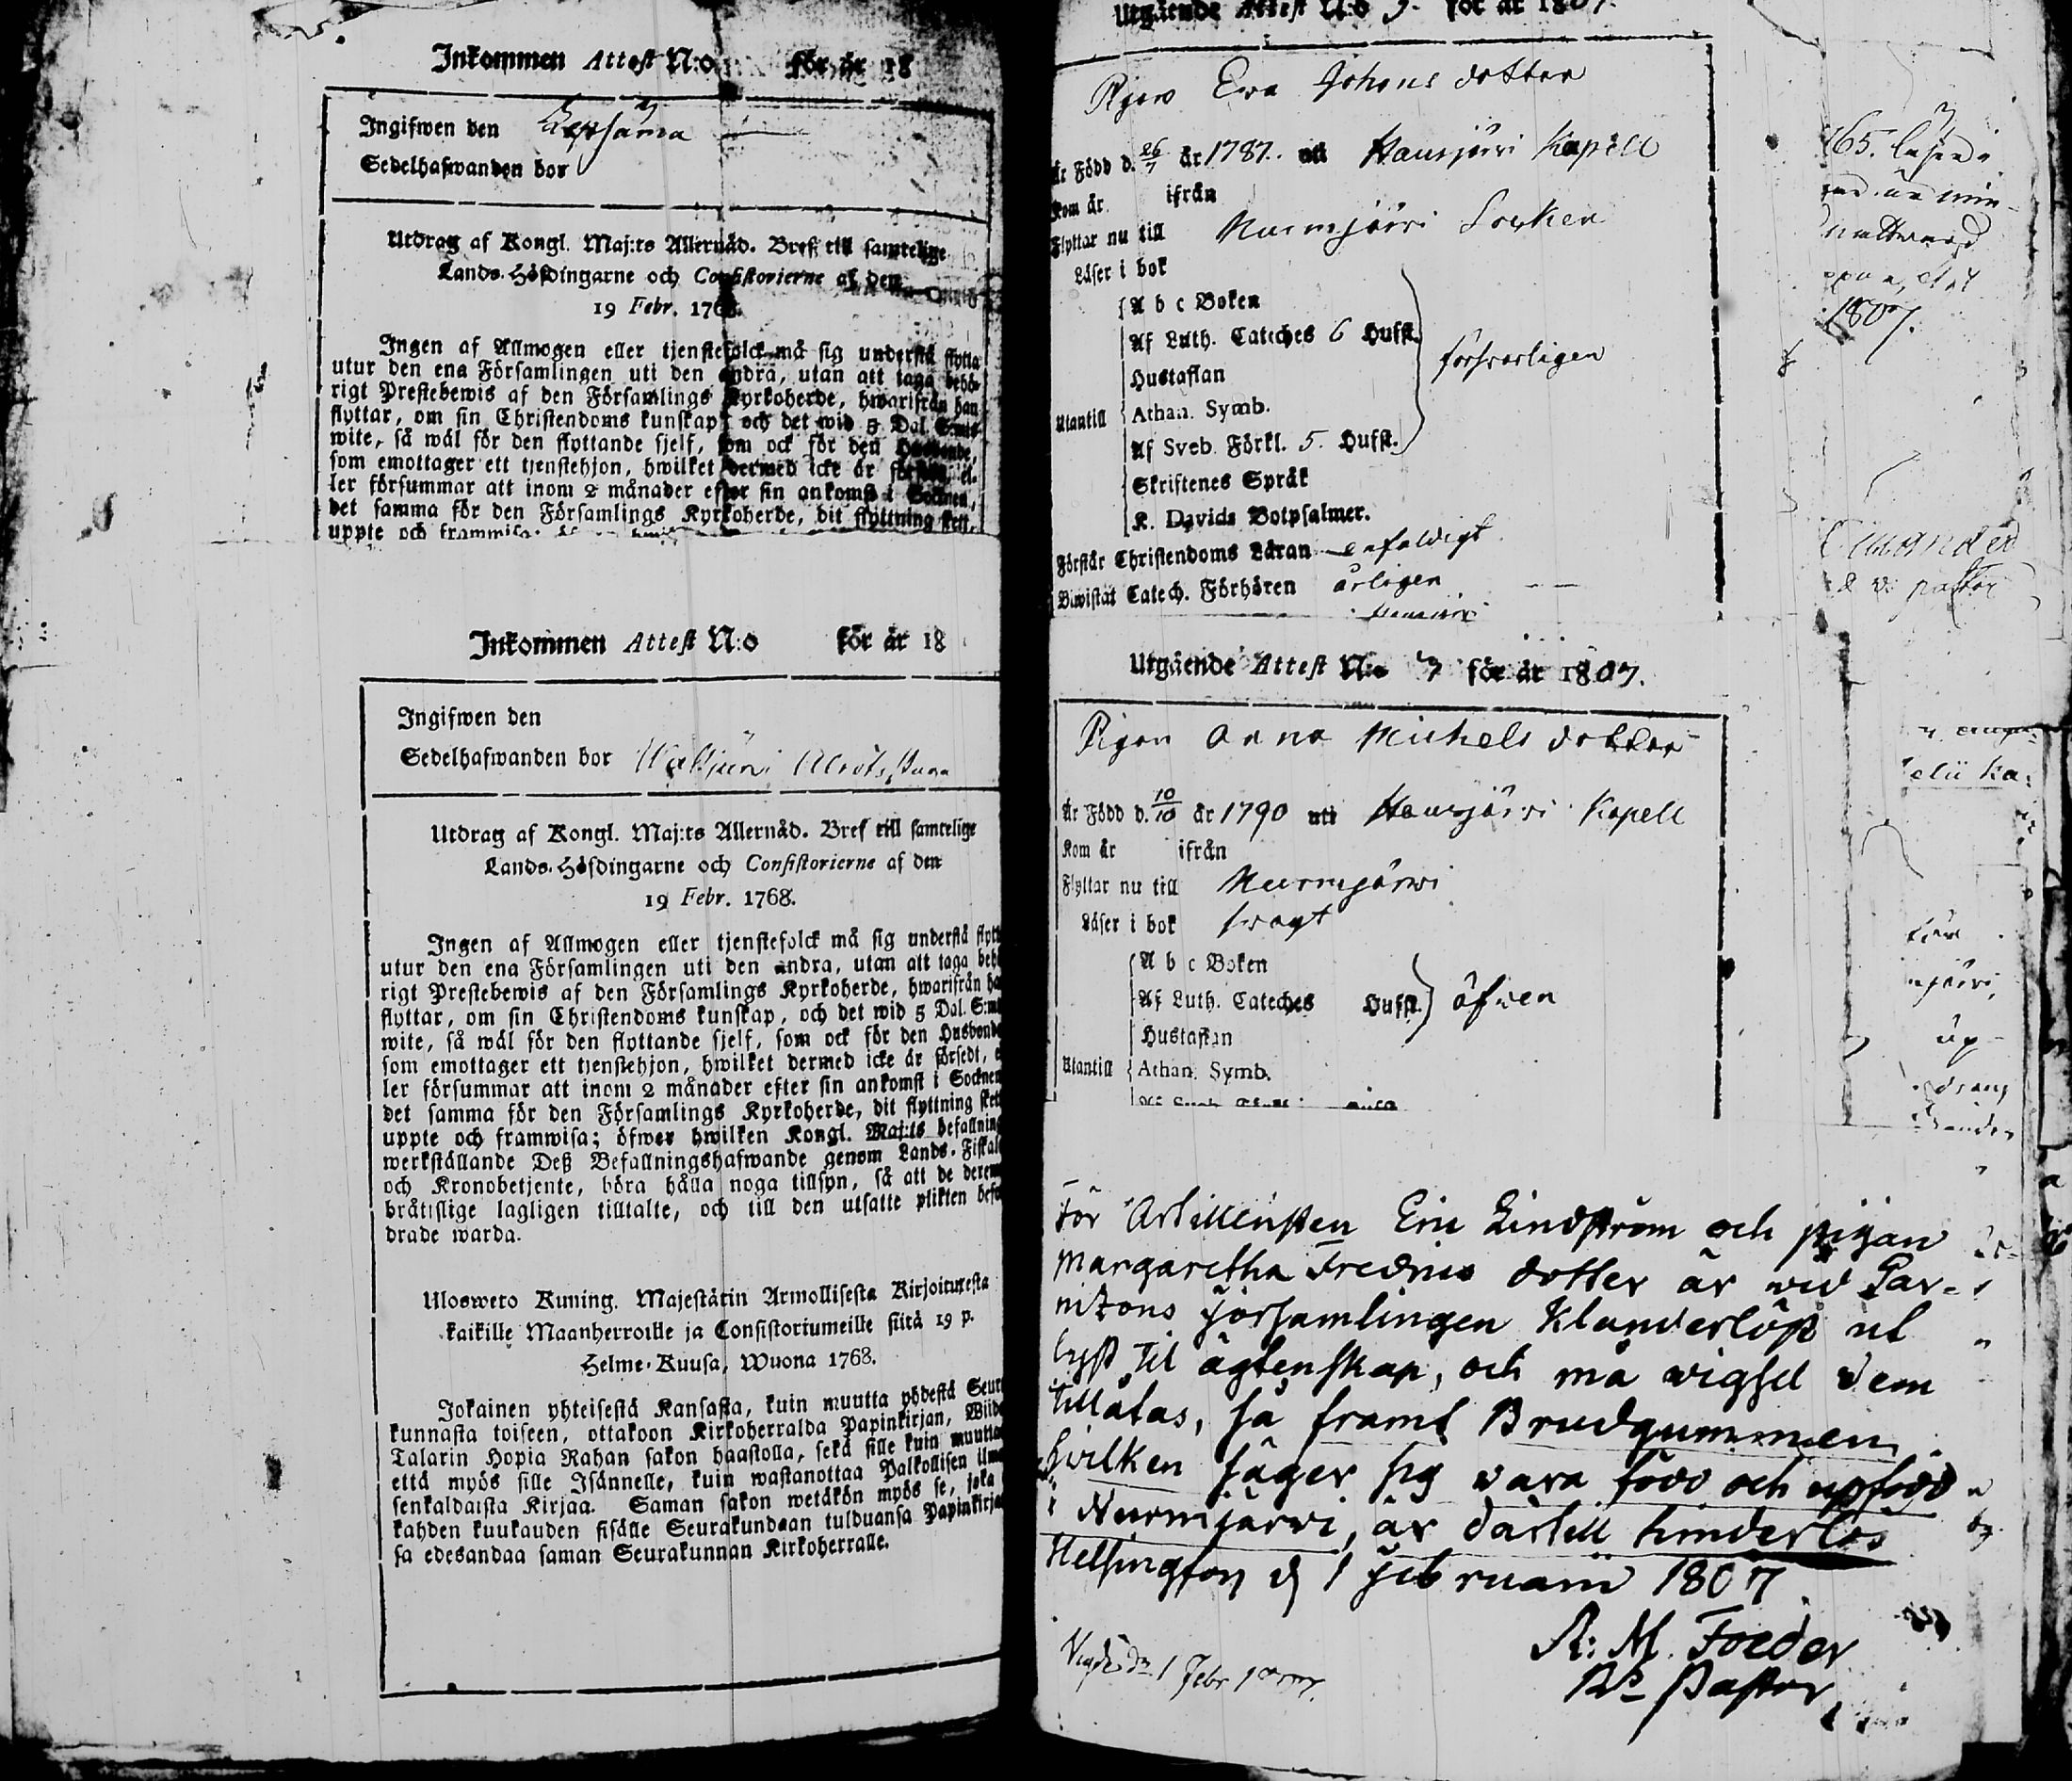 Inkommen Attest N:o för år 18
Ingifwen den Lepsäma
Sedelhafwanden bor
Utdrag af Kongl. Maj:ts Allernåd. Bref till samtelige
Lands-Höfdingarne och Consistorierne af den
19 Febr. 1768.
Ingen af Allmogen eller tjenstefolck må sig understå flytta
utur den ena Församlingen uti den andra, utan att taga behö-
rigt Prestebewis af den Församlings Kyrkoherde, hwarifrån han
flyttar, om sin Christendoms kunskap, och det wid 5 Dal. S:mts
wite, så wäl för den flyttande sjelf, som ock för den Husbonde,
som emottager ett tjenstehjon, hwilket dermed icke är försedt, el-
ler försummar att inom 2 månader efter sin ankomst i Socknen,
det samma för den Församlings Kyrkoherde, dit flyttning skett,
uppte och framwisa;
Inkommen Attest N:o för år 18
Ingifwen den
Sedelhafwanden bor
Utdrag af Kongl. Maj:ts Allernåd. Bref till samtelige
Lands-Höfdingarne och Consistorierne af den
19 Febr. 1768.
Ingen af Allmogen eller tjenstefolck må sig understå flytt
utur den ena Församlingen uti den andra, utan att taga behö
rigt Prestebewis af den Församlings Kyrkoherde, hwarifrån ha
flyttar, om sin Christendoms kunskap, och det wid 5 Dal. S:mt
wite, så wäl för den flyttande sjelf, som ock för den Husbonde
som emottager ett tjenstehjon, hwilket dermed icke är försedt, e
ler försummar att inom 2 månader efter sin ankomst i Socknen
det samma för den Församlings Kyrkoherde, dit flyttning sket
uppte och framwisa; öfwer hwilken Kongl. Maj:ts befallning
werkställande Deß Befallningshafwande genom Lands-Fiskal
och Kronobetjente, böra hålla noga tillsyn, så att de derem
bråtislige lagligen tilltalte, och till den utsatte plikten befo
drade warda.
Uloswero Kuning. Majestätin Armollisesta Kirjoituxesta
kaikille Maanherroille ja Consistoriumeille siitä 19 p.
Helme-Kuusa, Wuona 1768.
Jokainen yhteisestä Kansasta, kuin muutta yhdestä Seur
kunnasta toiseen, ottakoon Kirkoherralda Papinkirjan, Wiide
Talarin Hopia Rahan sakon haastolla, sekä sille kuin muutta
että myös sille Isännelle, kuin wastanottaa Palkollisen ilma
senkaldaista Kirjaa. Saman sakon wetäkön myös se, joka
kahden kuukauden sisälle Seurakundaan tulduansa Papinkirja
sa edesandaa saman Seurakunnan Kirkoherralle.
Utgående Attest N:o 3. för år 1807.
Pigan Ewa Johans dotter
Är Född d. 26/7 år 1787. uti Hausjärvi Kapell
Kom år ifrån
Flyttar nu till Nurmjärvi Socken
Läser i bok
A b c Boken
Af Luth. Cateches 6 Hufst.
Hustaflan
försvarligen
Utantill
Athan. Symb.
Af Sveb. Förkl. 5. Hufst.
Skriftenes Språk
K. Davids Botpsalmer.
Förstår Christendoms Läran enfaldigt
Biwistat Catech. Förhören årligen
Utgående Attest N:o 7 för år 1807.
Pigan Anna Michels dotter
Är Född d. 10/10 år 1790 uti Hausjärvi Kapell
Kom år ifrån
Flyttar nu till Nurmjärwi
Läser i bok svagt
A b c Boken
Af Luth. Cateches Hufst. äfwen
Hustaflan
Utantill
Athan. Symb.
För Artilleristen Eric Lindström och pigan
Margaretha Fredrics dotter är wid Gar-
nizons Församlingen Klanderlöst ut
lyst til ägtenskap, och må wigsel dem
tillåtas, så framt Brudgummen
hvilken säger sig vara född och upfödd
i Nurmjärwi, är därtill hinderlös
Helsingfors d 1 Februarii 1807
A: M. Foeder
Vigde d. 1 Febr 1807.
Pastor
165.
1807.